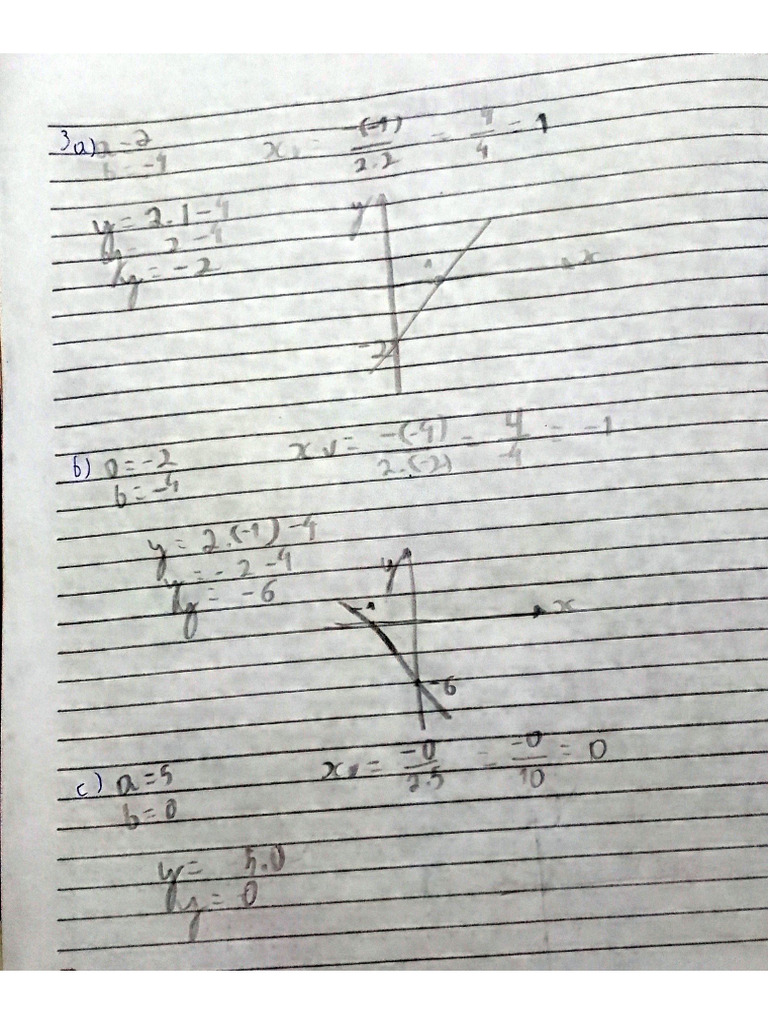 3a) a=2 xv = -(-4)/2.2 = 4/4 = 1
b=-4
y = 2.1-4
y = 2-4
y = -2
y
1
x
-2
b) a=-2 xv = -(-4)/2.(-2) = 4/-4 = -1
b=-4
y = 2.(-1)-4
y = -2-4
y = -6
y
-1
x
-6
c) a=5 xv = -0/2.5 = -0/10 = 0
b=0
y = 5.0
y = 0